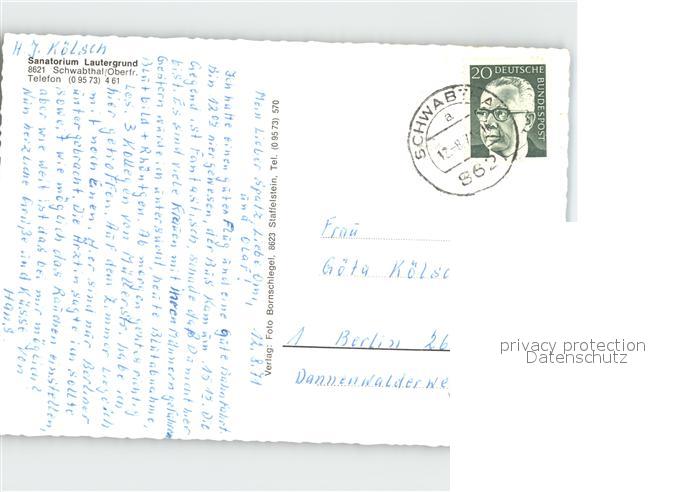 H J. Kölsch
Sanatorium Lautergrund
8621 Schwabthal/Oberfr.
Telefon (0 95 73) 4 61
12.8.71
Mein Lieber Spatz, Liebe Omi,
und Olaf!
Ich hatte einen guten Flug und eine gute Bahnfahrt.
Bin 1205 hergewesen, der Bus kam um 1515. Die
Gegend ist fantastisch, schade daß Du nicht hier
bist. Es sind viele Frauen mit Ihren Männern gefahren
Gestern wurde ich untersucht heute Blutabnahme,
Blutbild + Röntgen. Ab morgen geht es richtig
los. 3 Kollegen von Müllerstr. habe ich
hier getroffen. Auf dem Zimmer liege ich
mit noch Einen. Hier sind nur Berliner
untergebracht. Die Ärztin sagte ich sollte
soweit wie möglich das Rauchen einstellen,
aber wie weit ist das bei mir möglich?
Nun herzliche Grüße und Küsse Dein
Hans.
Verlag: Foto Bornschlegel, 8623 Staffelstein, Tel. (0 95 73) 570
20 DEUTSCHE
BUNDESPOST
SCHWABTHAL
a
862
Frau
Göta Kölsc
1 Berlin 26
Dannenwalderwe
privacy protection
Datenschutz